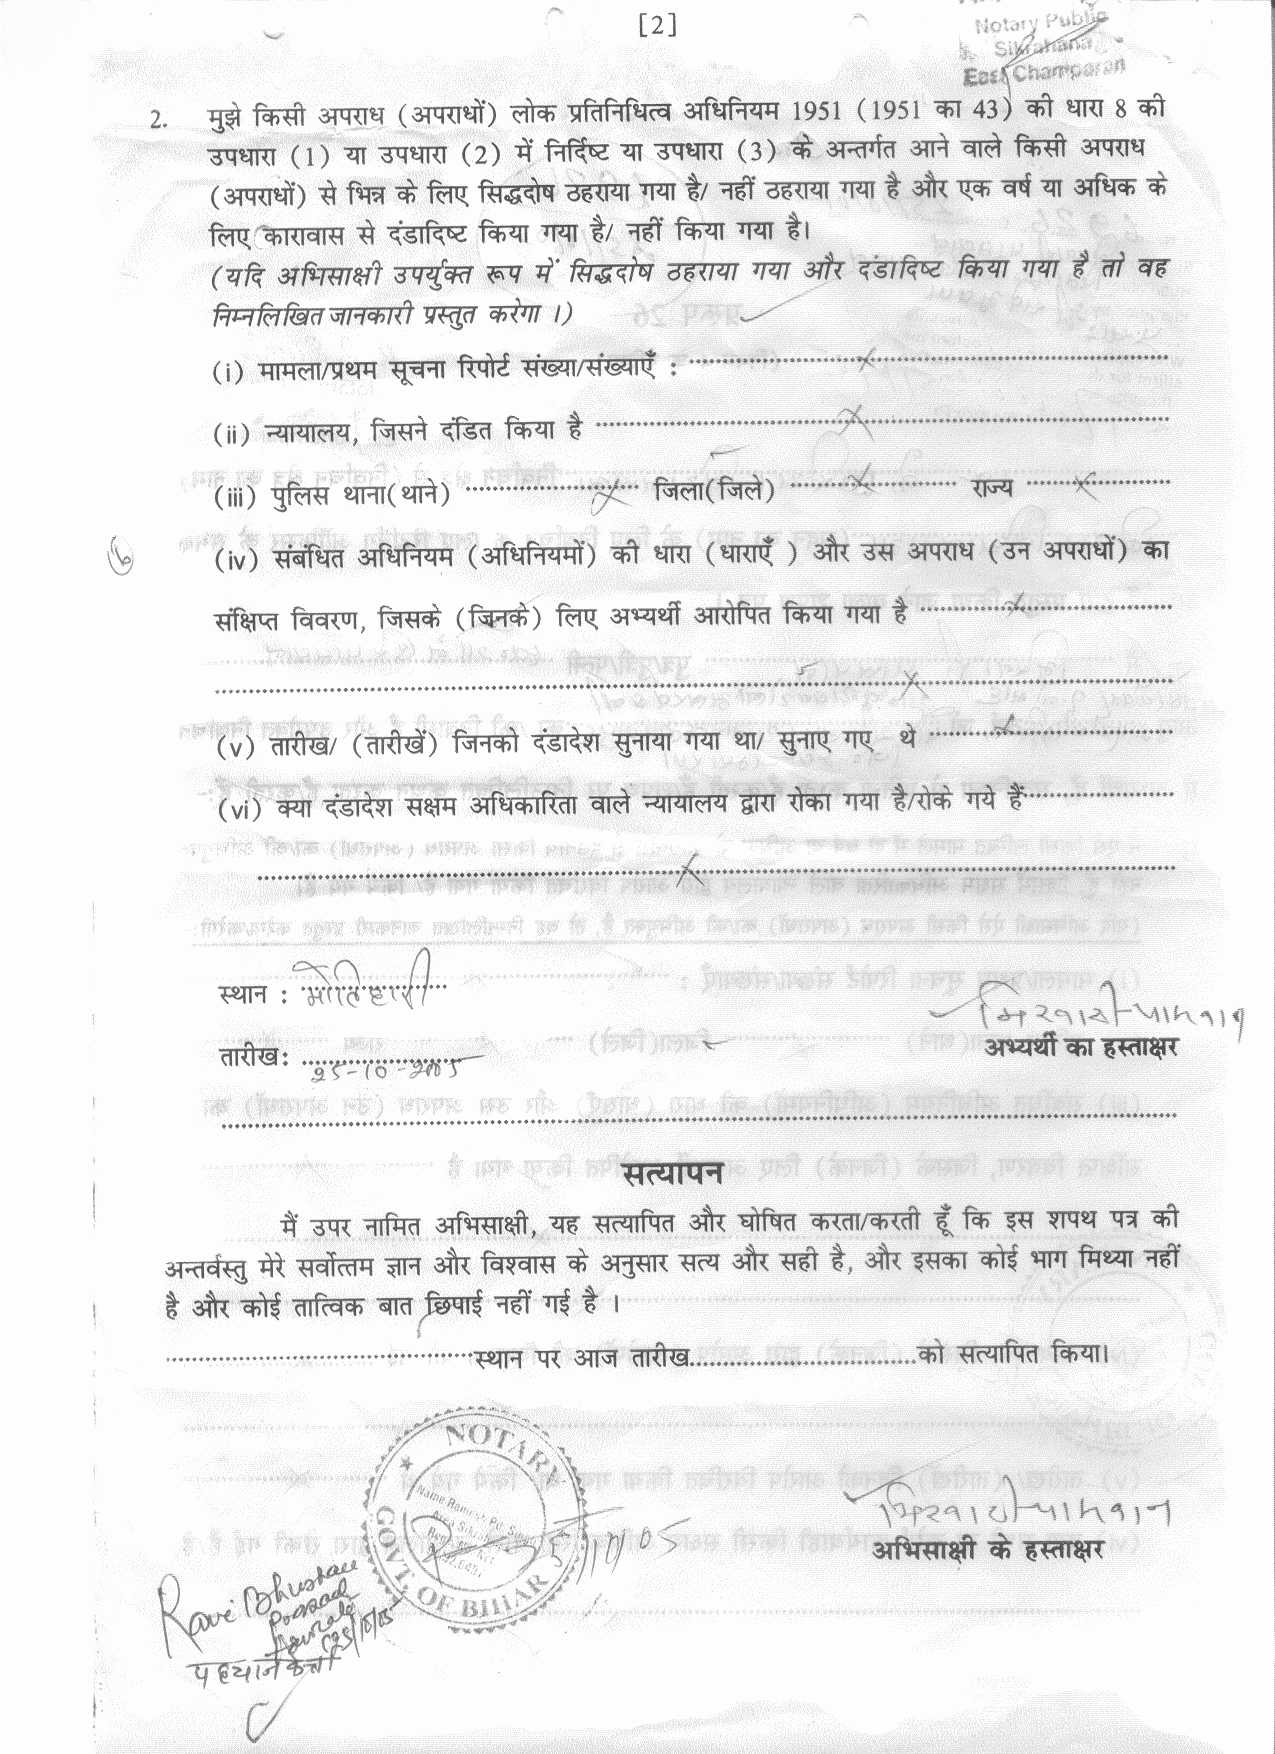 [2]
Notary Public
Sikrahana
East Champaran
2. मुझे किसी अपराध (अपराधों) लोक प्रतिनिधित्व अधिनियम 1951 (1951 का 43) की धारा 8 की
उपधारा (1) या उपधारा (2) में निर्दिष्ट या उपधारा (3) के अन्तर्गत आने वाले किसी अपराध
(अपराधों) से भिन्न के लिए सिद्धदोष ठहराया गया है/ नहीं ठहराया गया है और एक वर्ष या अधिक के
लिए कारावास से दंडादिष्ट किया गया है/ नहीं किया गया है।
(यदि अभिसाक्षी उपर्युक्त रूप में सिद्धदोष ठहराया गया और दंडादिष्ट किया गया है तो वह
निम्नलिखित जानकारी प्रस्तुत करेगा ।)
(i) मामला/प्रथम सूचना रिपोर्ट संख्या/संख्याएँ : x
(ii) न्यायालय, जिसने दंडित किया है x
(iii) पुलिस थाना(थाने) x जिला(जिले) x राज्य x
(iv) संबंधित अधिनियम (अधिनियमों) की धारा (धाराएँ ) और उस अपराध (उन अपराधों) का
संक्षिप्त विवरण, जिसके (जिनके) लिए अभ्यर्थी आरोपित किया गया है x
x
(v) तारीख/ (तारीखें) जिनको दंडादेश सुनाया गया था/ सुनाए गए थे x
(vi) क्या दंडादेश सक्षम अधिकारिता वाले न्यायालय द्वारा रोका गया है/रोके गये हैं
x
स्थान : मोतिहारी
तारीख: 25-10-2005
अभ्यर्थी का हस्ताक्षर
सत्यापन
मैं उपर नामित अभिसाक्षी, यह सत्यापित और घोषित करता/करती हूँ कि इस शपथ पत्र की
अन्तर्वस्तु मेरे सर्वोत्तम ज्ञान और विश्वास के अनुसार सत्य और सही है, और इसका कोई भाग मिथ्या नहीं
है और कोई तात्विक बात छिपाई नहीं गई है ।
स्थान पर आज तारीख को सत्यापित किया।
NOTARY
GOVT. OF BIHAR
अभिसाक्षी के हस्ताक्षर
Ravi Bhushan
Prasad
25/10/05